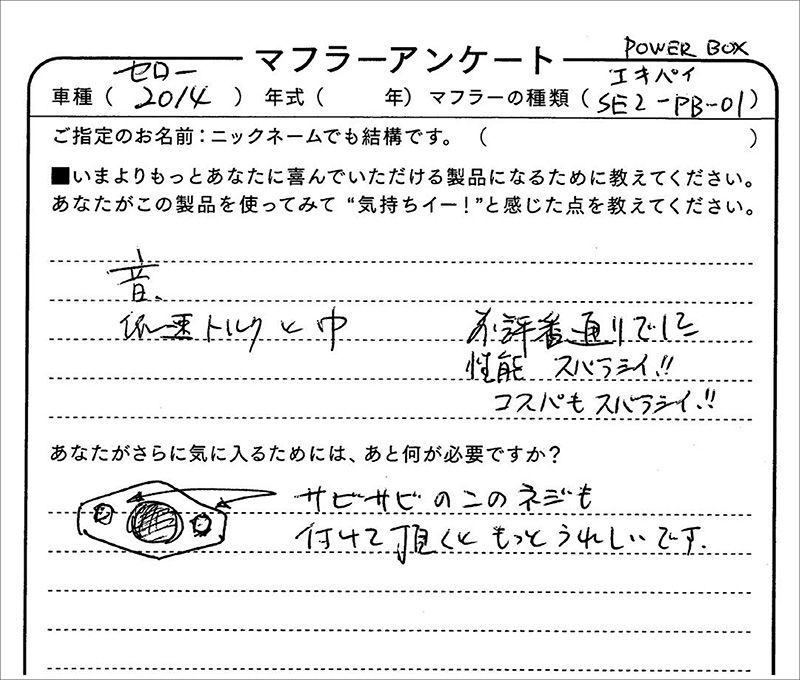 マフラーアンケート
POWER BOX
セロー
エキパイ
車種( 2014 ) 年式( 年) マフラーの種類( SE2-PB-01 )
ご指定のお名前:ニックネームでも結構です。( )
■いまよりもっとあなたに喜んでいただける製品になるために教えてください。
あなたがこの製品を使ってみて“気持ちイー!”と感じた点を教えてください。
音、
低速トルクと中
お評番通りでした
性能 スバラシイ!!
コスパもスバラシイ!!
あなたがさらに気に入るためには、あと何が必要ですか?
サビサビのこのネジも
付けて頂くともっとうれしいです.